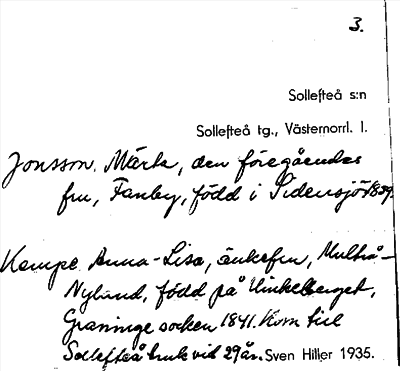 3.
Sollefteå s:n
Sollefteå tg., Västernorrl. l.
Jonsson. Märta, den föregåendes
fru, Fanby, född i Sidensjö 1839.
Kempe Anna-Lisa, änkefru, Multrå-
Nyland, född på Vinkelberget,
Graninge socken 1841. Kom till
Sollefteå bruk vid 29 år. Sven Hiller 1935.